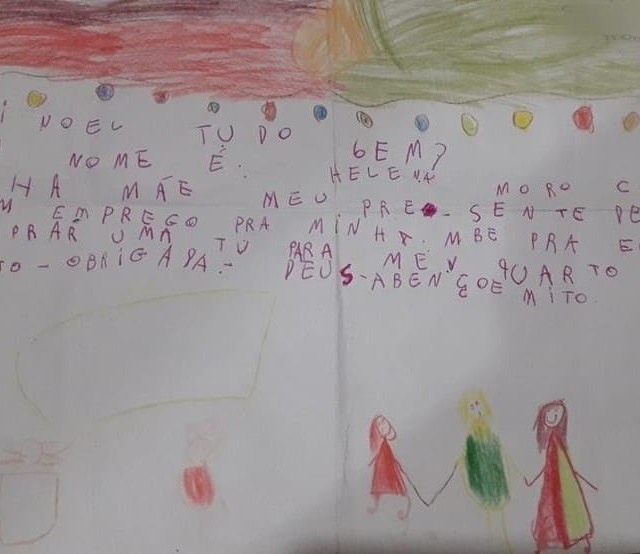 NOEL TUDO BEM?
NOME É. HELENA
HA MÃE MORO C
EMPREGO MEU PRE - SENTE PE
PRAR UMA PRA MINHA. MBE PRA E
TO - OBRIGADA. - TU PARA MEU QUARTO
DEUS - ABENÇOE MITO.